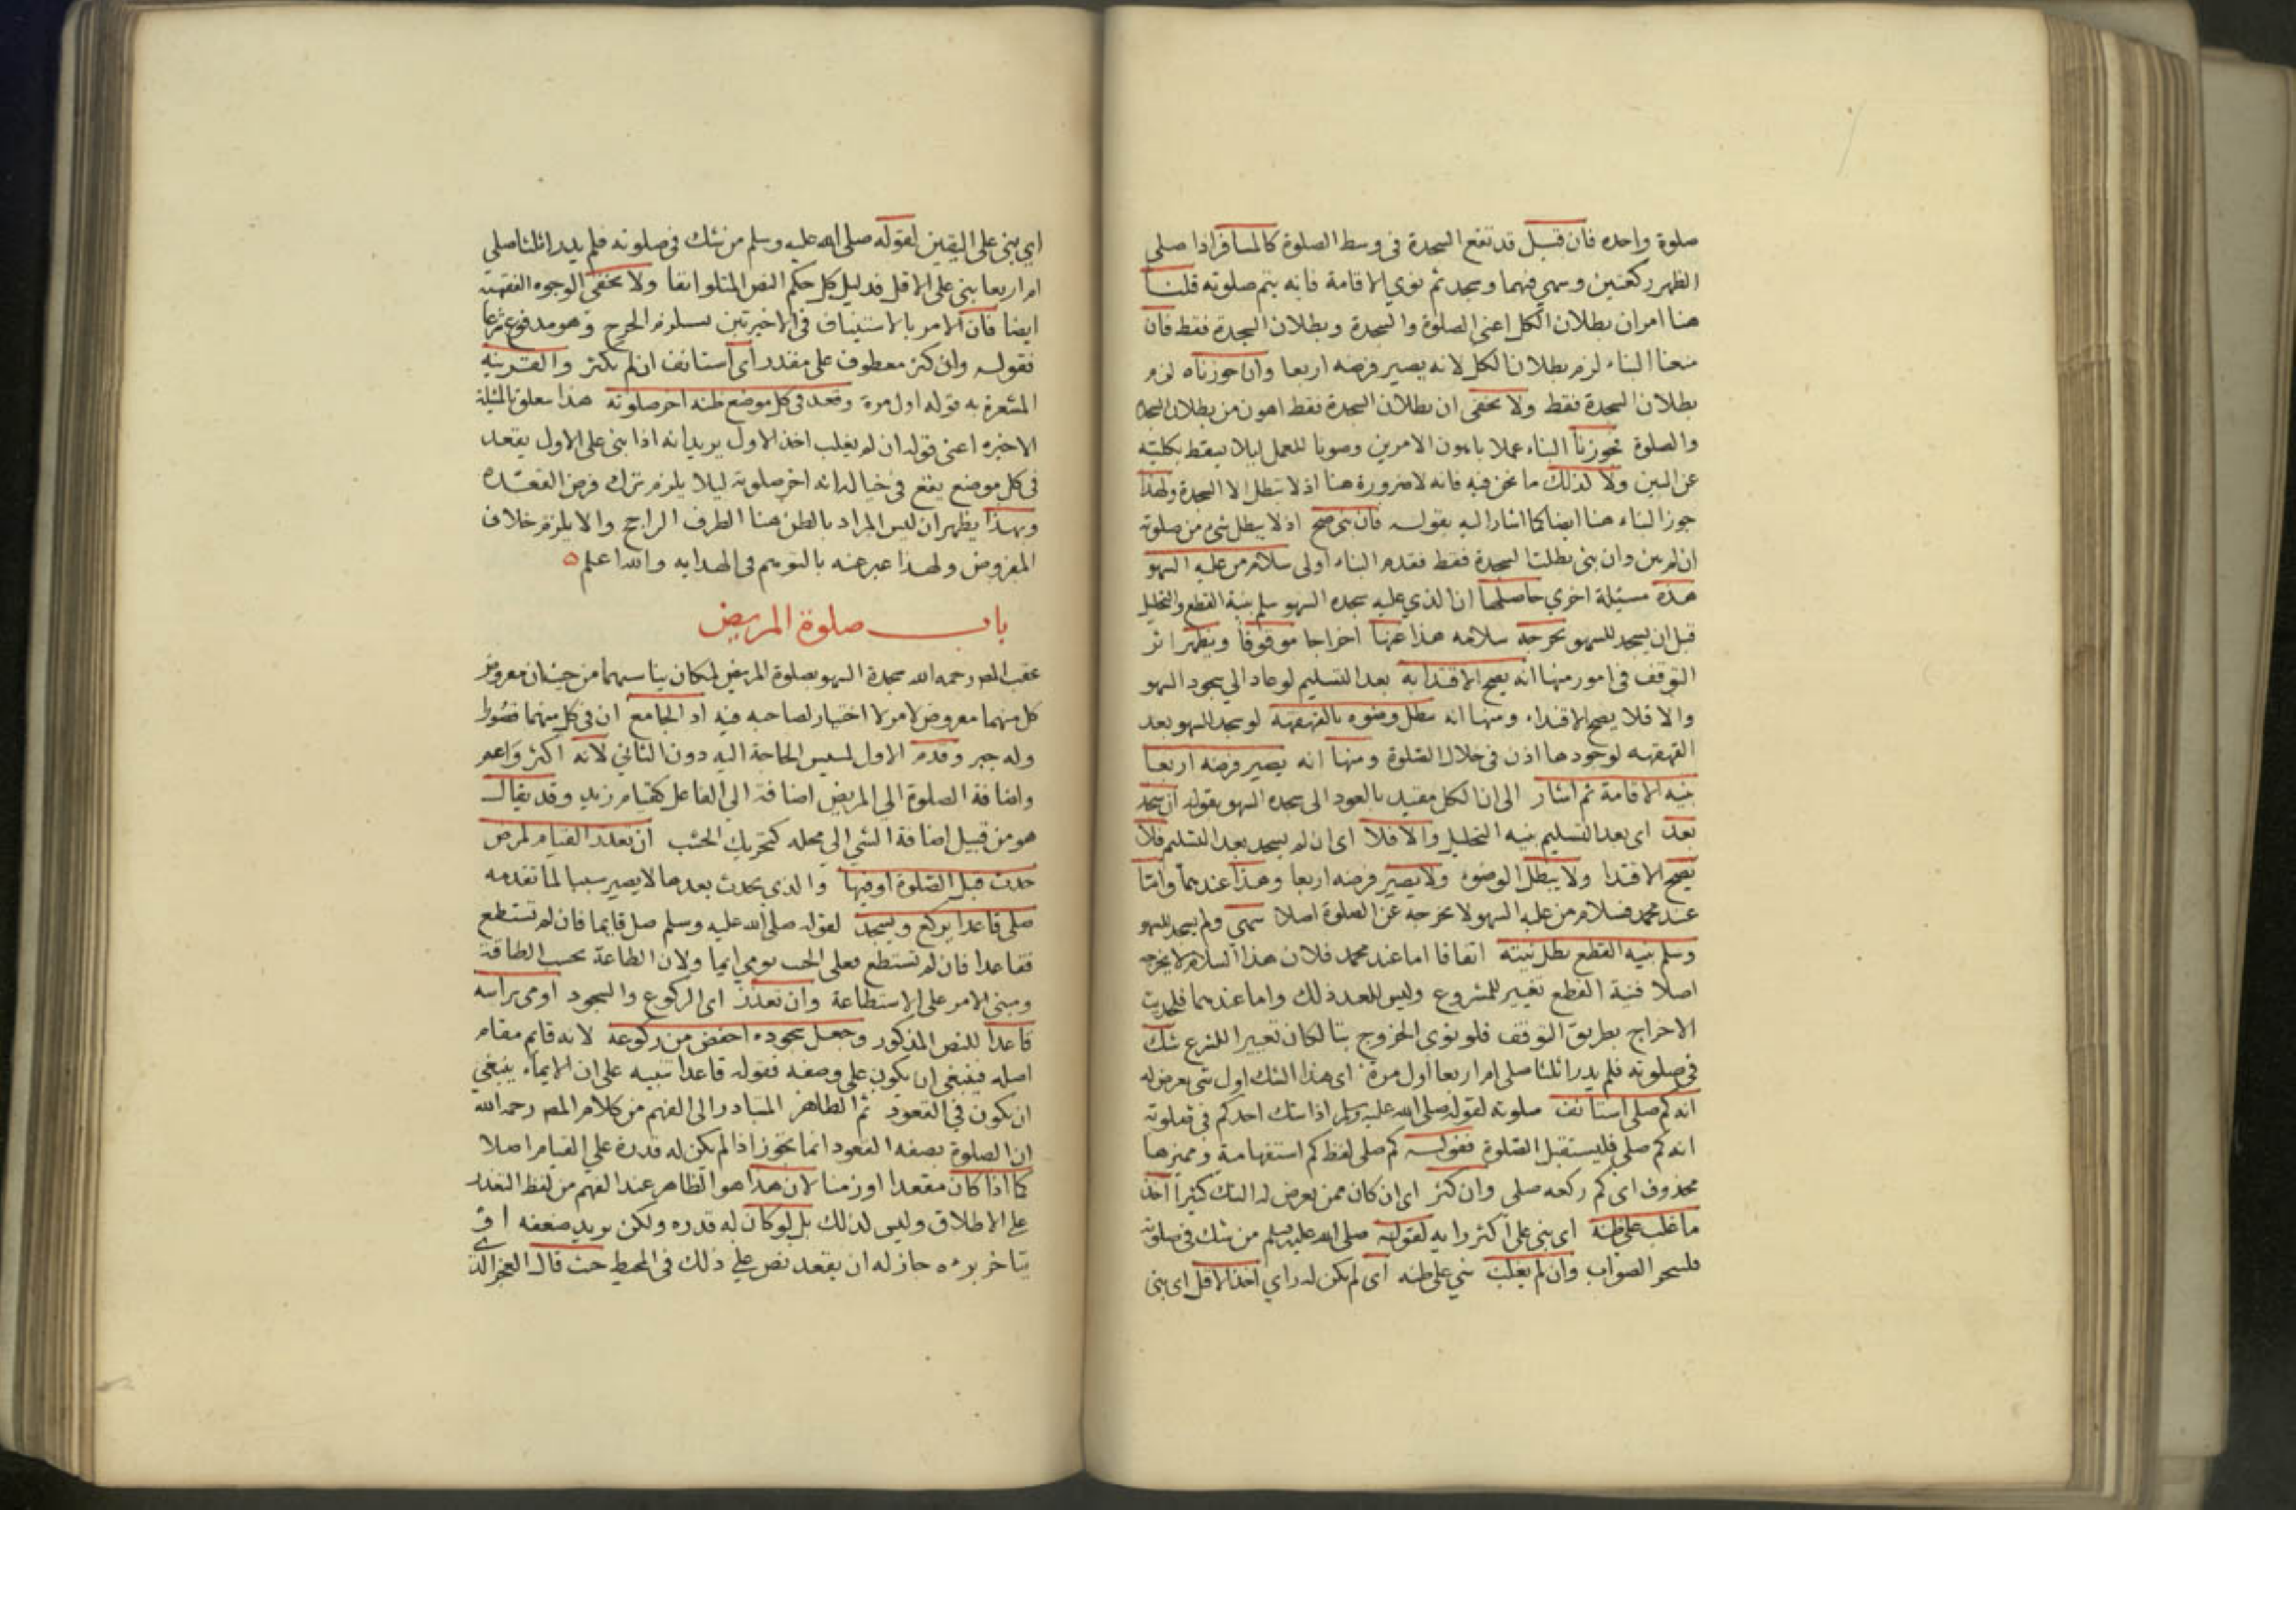 صلوة واحده فان قيل قد تقع السجدة فى وسط الصلوة كالمسافر اذا صلى
الظهر ركعتين وسهي فيهما وسجد ثم نوي الاقامة فانه يتم صلوته قلنا
هنا امران بطلان الكل اعنى الصلوة والسجدة وبطلان السجدة فقط فان
منعنا البناء لزم بطلان الكل لانه يصير فرضه اربعا وان جوزناه لزم
بطلان السجدة فقط ولا يخفى ان بطلان السجدة فقط اهون من بطلان السجدة
والصلوة فجوزنا البناء عملا باهون الامرين وصونا للعمل ليلا يسقط بكليته
عن البين ولا كذلك ما نحن فيه فانه لا ضرورة هنا اذ لا تبطل الا السجدة ولهذا
جوز البناء هنا ايضا كما اشار اليه بقوله فان بنى صح اذ لا يبطل شئ من صلوته
ان لم يبن وان بنى بطلت السجدة فقط فقدم البناء اولى سلام من عليه السهو
هذه مسئلة اخري حاصلها ان الذي عليه سجده السهو سلم بنية القطع والتحليل
قبل ان يسجد للسهو يخرجه سلامه هذا عنها اخراجا موقوفا ويظهر اثر
التوقف فى امور منها انه يصح الاقتدا به بعد التسليم لو عاد الي سجود السهو
والا فلا يصح الاقتداء ومنها انه يبطل وضوه بالقهقهة لو سجد للسهو بعد
القهقهه لوجودها اذن فى خلال الصلوة ومنها انه يصير فرضه اربعا
بنيه الاقامة ثم اشار الى ان الكل مقيد بالعود الى سجده السهو بقوله ان سجد
بعد اى بعد التسليم بنيه التحليل والا فلا اى ان لم يسجد بعد التسليم فلا
يصح الاقتدا ولا يبطل الوضوء ولا يصير فرضه اربعا وهذا عندهما وامّا
عند محمد فسلام من عليه السهو لا يخرجه عن الصلوة اصلا سهى ولم يسجد للسهو
وسلم بنيه القطع بطل نيته اتفاقا اما عند محمد فلان هذا السلام لا يخرجه
اصلا فنية القطع تغيير للمشروع وليس للعبد ذلك واما عندهما فلحديث
الاخراج بطريق التوقف فلو نوى الخروج بتا لكان تغييرا للشرع شك
فى صلوته فلم يدر اثلثا صلى ام اربعا اول مرة اى هذا الشك اول شى يعرض له
انه كم صلى استأنف صلوته لقوله صلى الله عليه وسلم اذا شك احدكم فى صلوته
انه كم صلى فليستقبل الصلوة فقوله كم صلى لفظ كم استفهامية ومميزها
محذوف اى كم ركعه صلى وان كثر اى ان كان ممن يعرض له الشك كثيرا اخذ
ما غلب على ظنه اى بنى على اكثر رايه لقوله صلى الله عليه وسلم من شك فى صلوته
فليتحر الصواب وان لم يغلب شي على ظنه اى لم يكن له راي اخذ الاقل اى بنى
اي بنى على اليقين لقوله صلى الله عليه وسلم من شك فى صلوته فلم يدر اثلثا صلي
ام اربعا بنى على الاقل فدليل كل حكم النص المتلو انفا ولا يخفى الوجوه الفقهيه
ايضا فان الامر بالاستيناف فى الاخيرتين يستلزم الحرج وهو مدفوع شرعا
فقوله وان كثر معطوف على مقدر اى استانف ان لم يكثر والقرينه
المشعرة به قوله اول مرة وقعد فى كل موضع ظنه اخر صلوته هذا متعلق بالمسئلة
الاخيره اعنى قوله ان لم يغلب اخذ الاول يريد انه اذا بنى على الاول يقعد
فى كل موضع يقع فى خياله انه اخر صلوته ليلا يلزم ترك فرض القعده
وبهذا يظهر ان ليس المراد بالظن هنا الطرف الراجح والا يلزم خلاف
المفروض ولهذا عبر عنه بالتوهم فى الهدايه والله اعلم
باب صلوة المريض
عقب المص رحمه الله سجدة السهو بصلوة المريض لمكان يناسبهما من حيث ان معروض
كل منهما معروض لامر لا اختيار لصاحبه فيه اذ الجامع ان فى كل منهما قصورا
وله جبر وقدم الاول لمسيس الحاجة اليه دون الثاني لانه اكثر واعم
واضافة الصلوة الي المريض اضافة الي الفاعل كقيام زيد وقد يقال
هو من قبيل اضافة الشي الي محله كتحريك الخشب ان تعذر القيام لمرض
حدث قبل الصلوة او فيها والذى يحدث بعدها لا يصير سببا لما تقدمه
صلى قاعدا يركع ويسجد لقوله صلى الله عليه وسلم صل قايما فان لم تستطع
فقاعدا فان لم تستطع فعلى الجنب يومى ايما ولان الطاعة بحسب الطاقة
ومبنى الامر على الاستطاعة وان تعذر اى الركوع والسجود اومى براسه
قاعدا للنص المذكور وجعل سجوده اخفض من ركوعه لانه قايم مقام
اصله فينبغى ان يكون على وصفه فقوله قاعدا تنبيه على ان الايماء ينبغي
ان يكون في القعود ثم الظاهر المتبادر الى الفهم من كلام المص رحمه الله
ان الصلوة بصفه القعود انما تجوز اذا لم يكن له قدرة علي القيام اصلا
كما اذا كان مقعدا او زمنا لان هذا هو الظاهر عند الفهم من لفظ التعذر
على الاطلاق وليس كذلك بل لو كان له قدره ولكن يريد ضعفه او
يتاخر برءه جاز له ان يقعد نص علي ذلك فى المحيط حيث قال العجز الذى